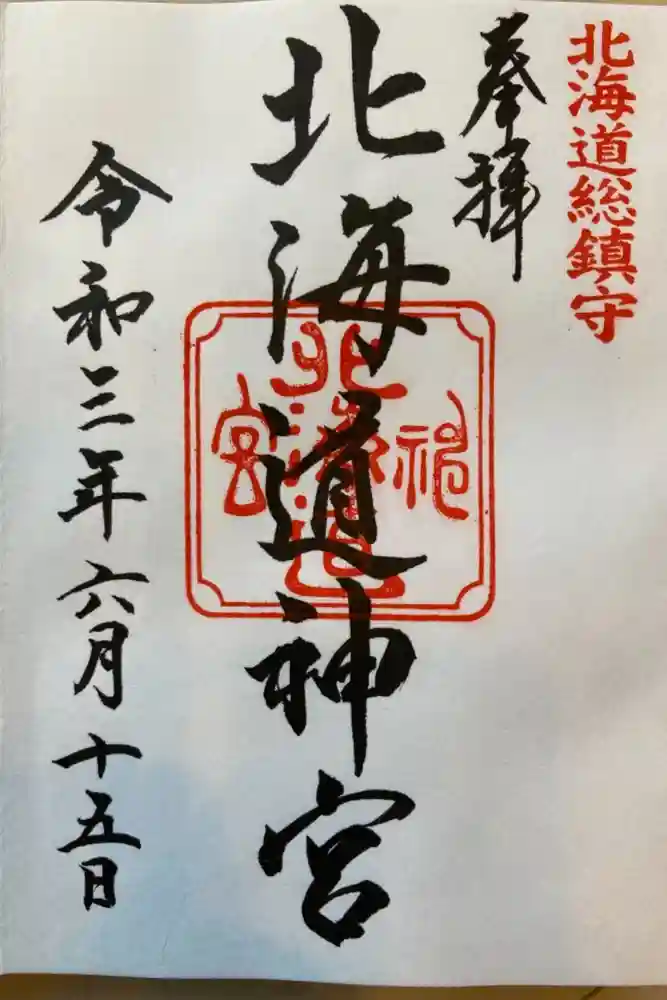 北海道総鎮守
奉拝
北海道神宮
令和三年六月十五日
北海道
神宮